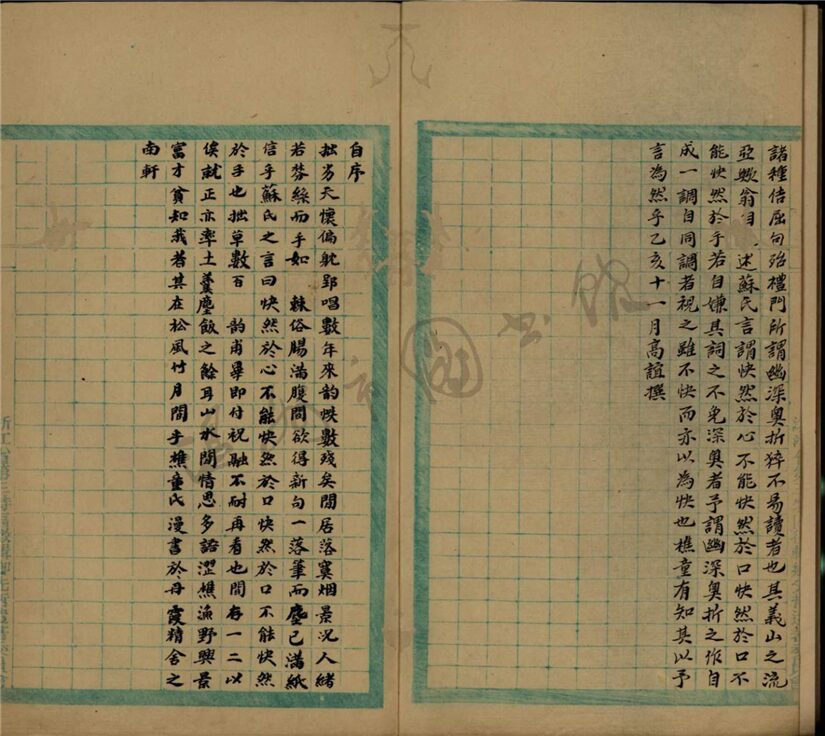 諸種佶屈句殆禮門所謂幽深奧折猝不易讀者也其義山之流
亞歟翁自述蘇氏言謂快然於心不能快然於口快然於口不
能快然於手若自嫌其詞之不免深奧者予謂幽深奧折之作自
成一調自同調者視之雖不快而亦以為快也樵童有知其以予
言為然乎乙亥十一月高誼撰
自序
拙劣天懷偏躭郢唱數年來韵帙數殘矣閒居落寞烟景況人緒
若棼絲而手如棘俗腸滿腹間欲得新句一落筆而塵已滿紙
信乎蘇氏之言曰快然於心不能快然於口快然於口不能快然
於手也拙草數百韵甫畢即付祝融不耐再看也間存一二以
俟就正亦率土羹塵飯之餘耳山水閒情思多語澀樵漁野興景
富才貧知我者其在松風竹月間乎樵童氏漫書於丹霞精舍之
南軒